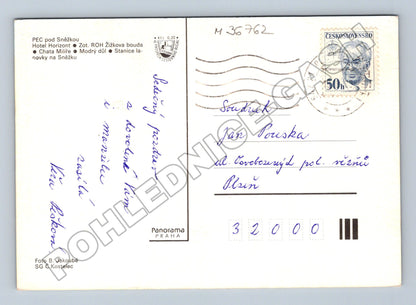 PEC pod Sněžkou
Hotel Horizont • Zot. ROH Žižkova bouda
• Chata Můře • Modrý důl • Stanice la-
novky na Sněžku
M 36762
ČESKOSLOVENSKO
50h
Srdečný pozdrav
z dovolené Vám
i manželce
zasílá
Soudruh
Jan Pouska
ul. Českoslov. pol. vězňů
Plzeň
32000
Panorama
PRAHA
Foto B. Jakoubě
SG Č. Kostelec
POHLEDNICE-GALERIE